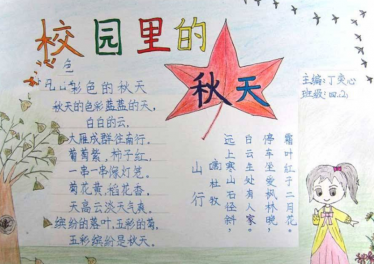 校园里的
秋天
主编:丁奕心
班级:四.2
彩色的秋天
秋天的色彩蓝蓝的天,
白白的云,
大雁成群往南行。
葡萄紫,柿子红,
一串一串像灯笼。
菊花黄,稻花香。
天高云淡天气爽,
缤纷的落叶,五彩的菊,
五彩缤纷是秋天。
山行
杜牧
远上寒山石径斜,
白云生处有人家。
停车坐爱枫林晚,
霜叶红于二月花。